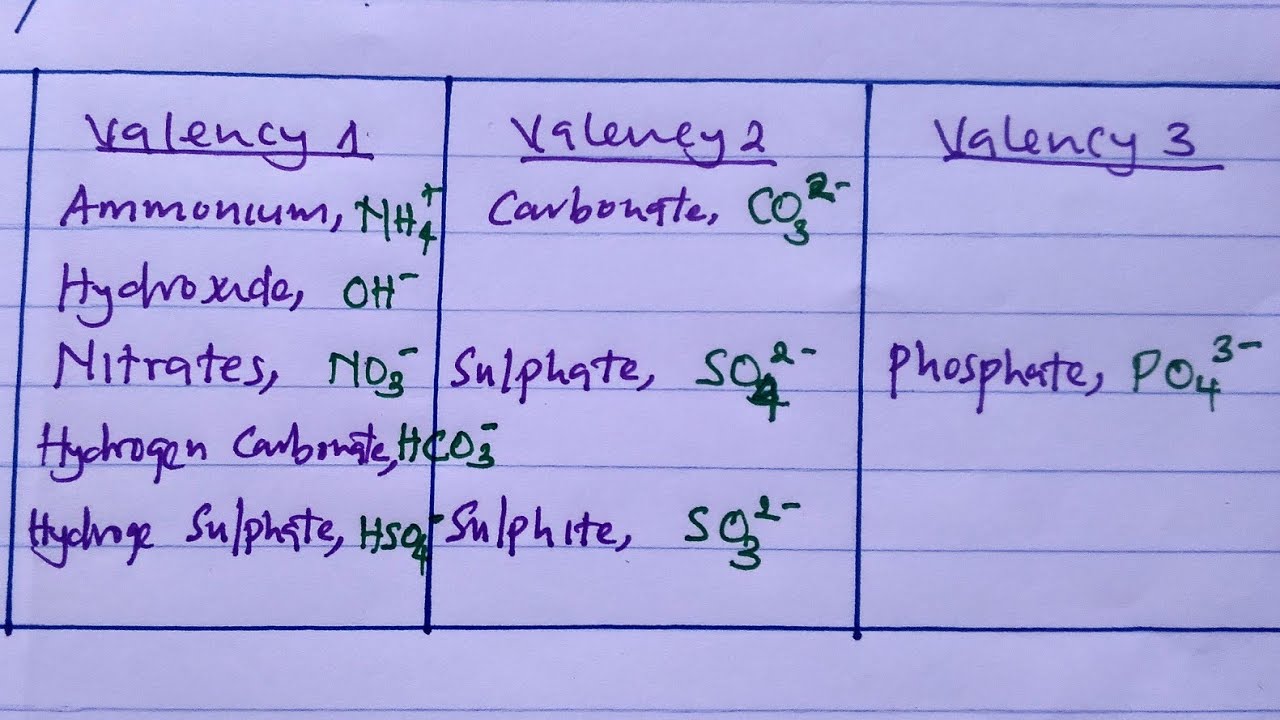 Valency 1 Valency 2 Valency 3
Ammonium, NH₄⁺ Carbonate, CO₃²⁻
Hydroxide, OH⁻
Nitrates, NO₃⁻ Sulphate, SO₄²⁻ Phosphate, PO₄³⁻
Hydrogen Carbonate, HCO₃⁻
Hydroge Sulphate, HSO₄⁻ Sulphite, SO₃²⁻